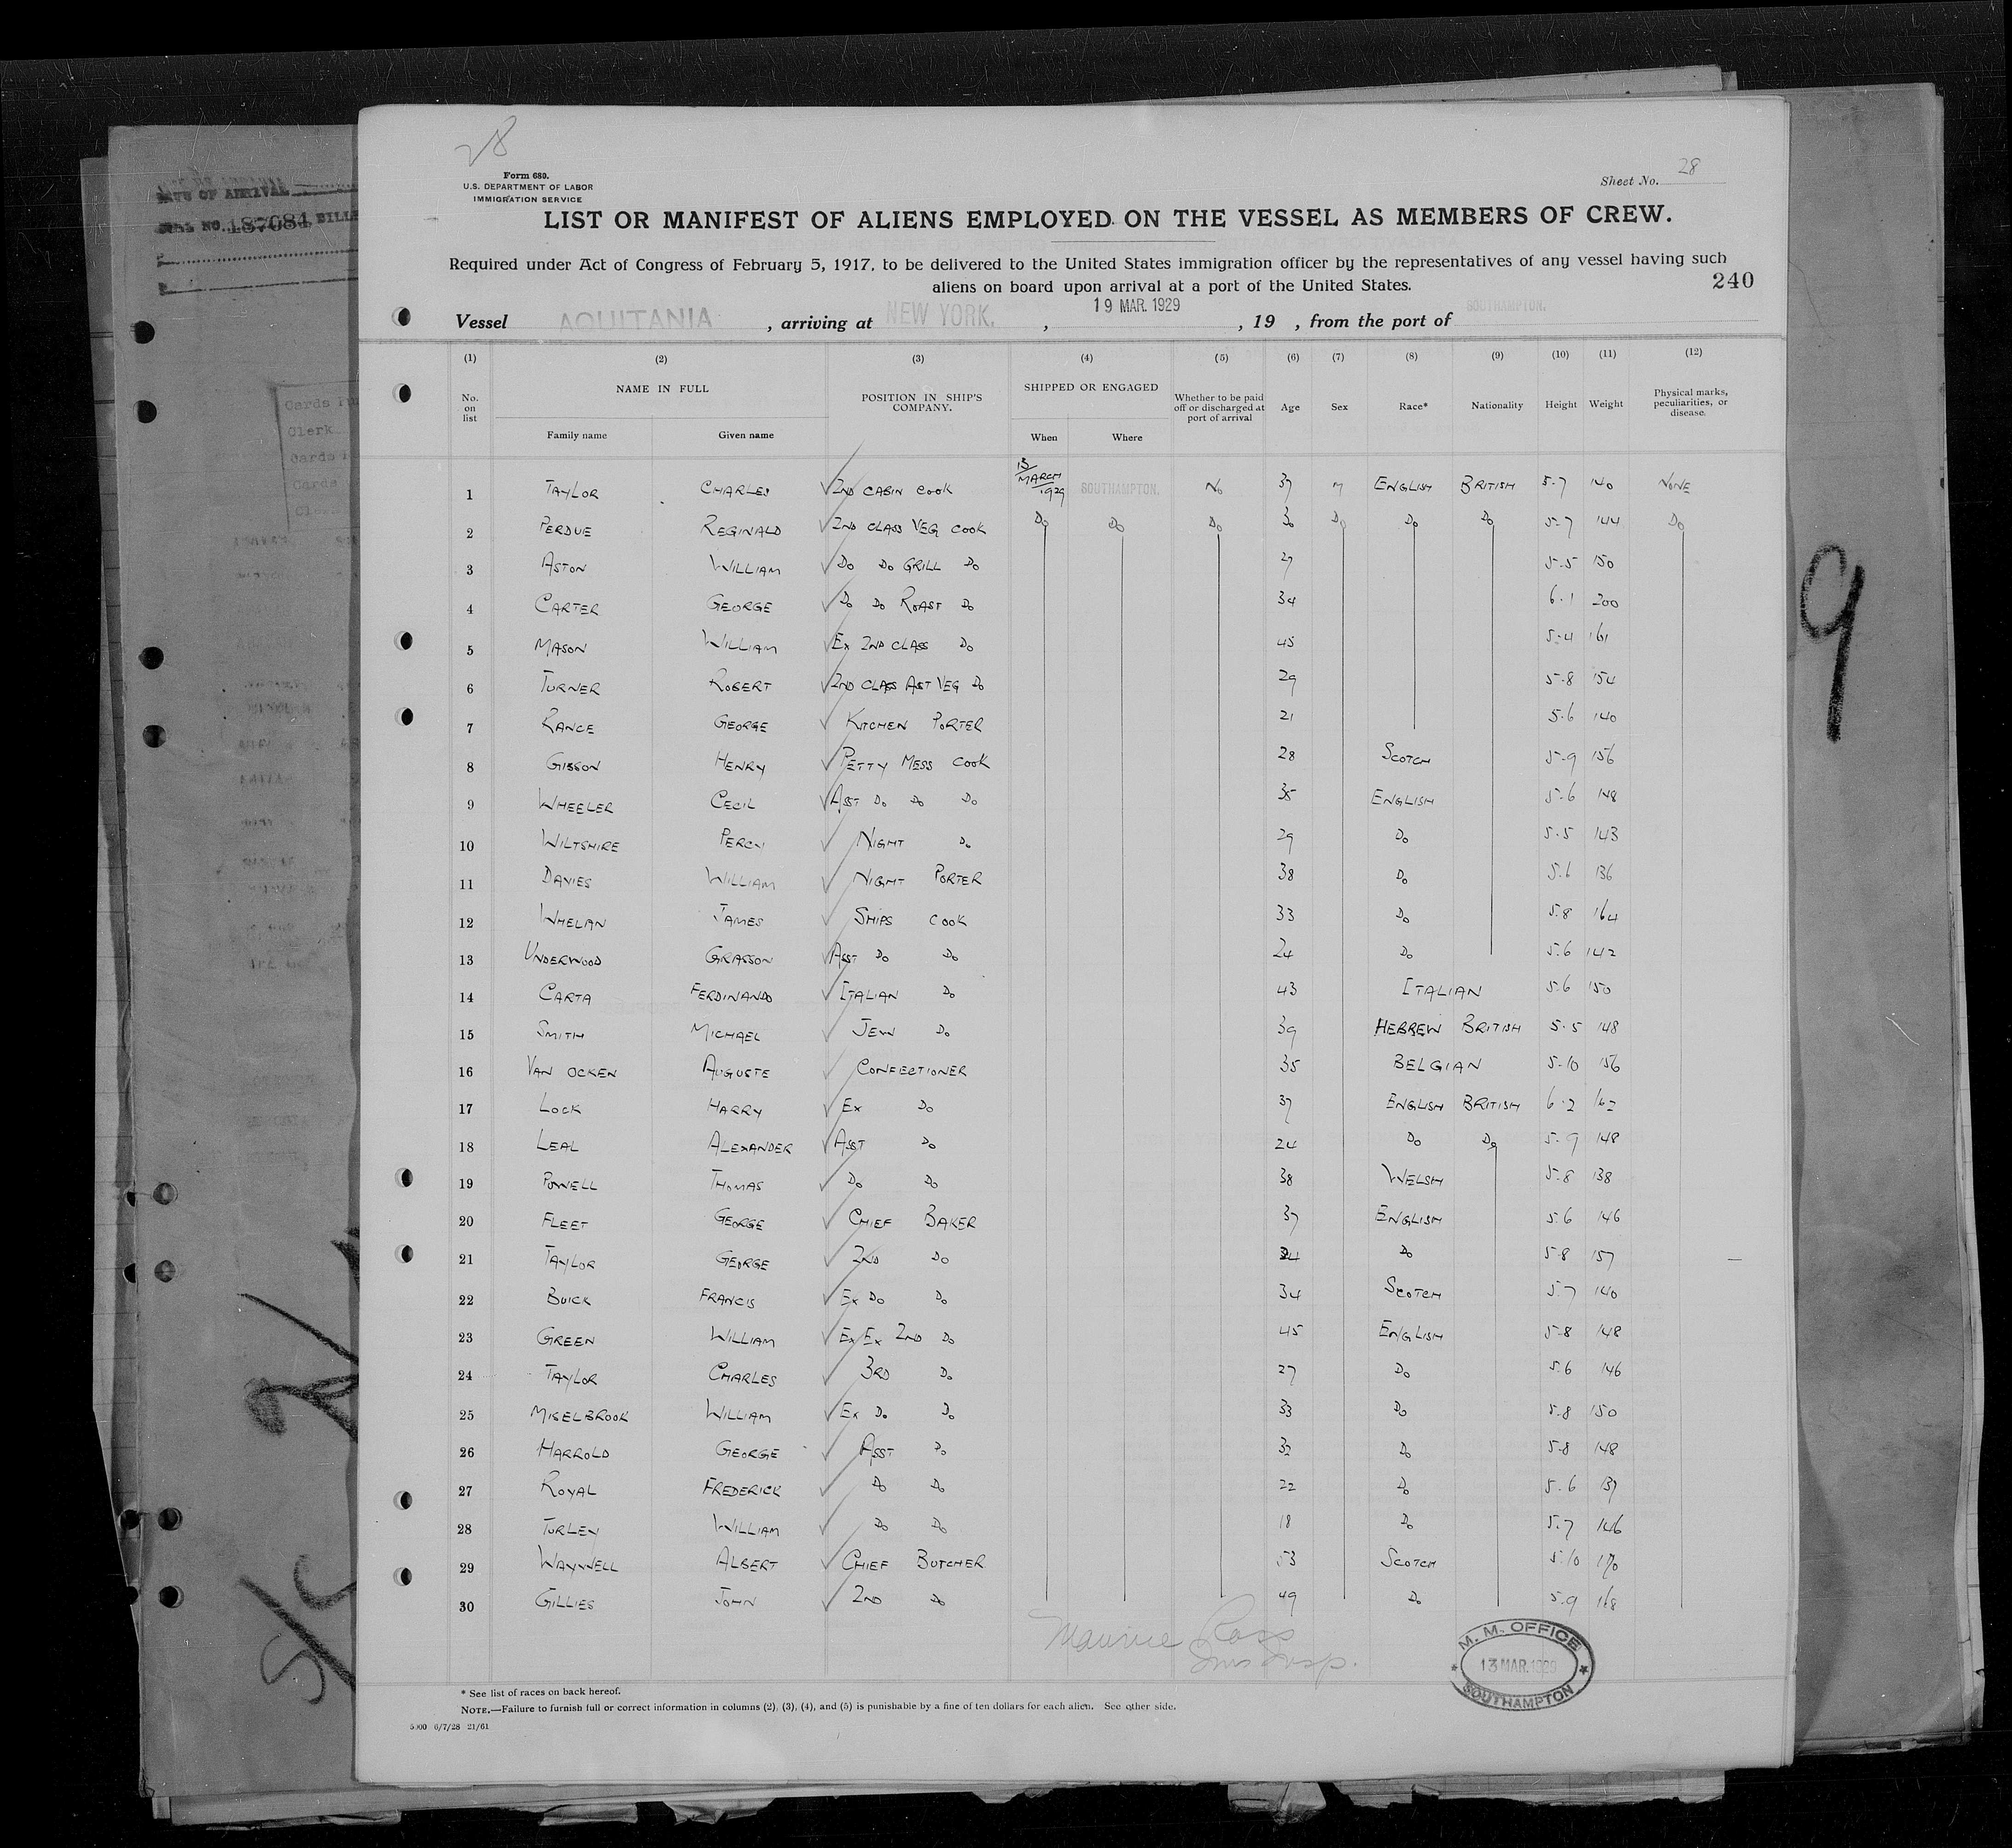 28
Form 680.
U.S. DEPARTMENT OF LABOR
IMMIGRATION SERVICE
Sheet No. 28
LIST OR MANIFEST OF ALIENS EMPLOYED ON THE VESSEL AS MEMBERS OF CREW.
Required under Act of Congress of February 5, 1917, to be delivered to the United States immigration officer by the representatives of any vessel having such
aliens on board upon arrival at a port of the United States.
240
Vessel AQUITANIA, arriving at NEW YORK, 19 MAR. 1929, 19 , from the port of SOUTHAMPTON.
(1) (2) (3) (4) (5) (6) (7) (8) (9) (10) (11) (12)
No. on list NAME IN FULL Family name Given name POSITION IN SHIP'S COMPANY. SHIPPED OR ENGAGED When Where Whether to be paid off or discharged at port of arrival Age Sex Race* Nationality Height Weight Physical marks, peculiarities, or disease.
1 TAYLOR CHARLES 2ND CABIN COOK 13/MARCH/1929 SOUTHAMPTON. No 37 M ENGLISH BRITISH 5-7 140 NONE
2 PERDUE REGINALD 2ND CLASS VEG COOK Do Do Do 30 Do Do Do 5-7 144 Do
3 ASTON WILLIAM Do Do GRILL Do 27 5-5 150
4 CARTER GEORGE Do Do ROAST Do 34 6-1 200
5 MASON WILLIAM Ex 2ND CLASS Do 45 5-4 161
6 TURNER ROBERT 2ND CLASS AST VEG Do 29 5-8 154
7 RANCE GEORGE KITCHEN PORTER 21 5-6 140
8 GIBSON HENRY PETTY MESS COOK 28 SCOTCH 5-9 156
9 WHEELER CECIL ASST Do Do Do 35 ENGLISH 5-6 148
10 WILTSHIRE PERCY NIGHT Do 29 Do 5-5 143
11 DAVIES WILLIAM NIGHT PORTER 38 Do 5-6 136
12 WHELAN JAMES SHIPS COOK 33 Do 5-8 164
13 UNDERWOOD GRASSON ASST Do Do 24 Do 5-6 142
14 CARTA FERDINANDO ITALIAN Do 43 ITALIAN 5-6 150
15 SMITH MICHAEL JEW Do 39 HEBREW BRITISH 5-5 148
16 VAN OCKEN AUGUSTE CONFECTIONER 35 BELGIAN 5-10 156
17 LOCK HARRY Ex Do 37 ENGLISH BRITISH 6-2 162
18 LEAL ALEXANDER ASST Do 24 Do Do 5-9 148
19 POWELL THOMAS Do Do 38 WELSH 5-8 138
20 FLEET GEORGE CHIEF BAKER 37 ENGLISH 5-6 146
21 TAYLOR GEORGE 2ND Do 34 Do 5-8 157
22 BUICK FRANCIS Ex Do Do 34 SCOTCH 5-7 140
23 GREEN WILLIAM Ex Ex 2ND Do 45 ENGLISH 5-8 148
24 TAYLOR CHARLES 3RD Do 27 Do 5-6 146
25 MISELBROOK WILLIAM Ex Do Do 33 Do 5-8 150
26 HARROLD GEORGE ASST Do 32 Do 5-8 148
27 ROYAL FREDERICK Do Do 22 Do 5-6 137
28 TURLEY WILLIAM Do Do 18 Do 5-7 146
29 WAYWELL ALBERT CHIEF BUTCHER 53 SCOTCH 5-10 170
30 GILLIES JOHN 2ND Do 49 Do 5-9 168
Maurice Ross
Imm Insp.
M. M. OFFICE
13 MAR. 1929
SOUTHAMPTON
* See list of races on back hereof.
NOTE.—Failure to furnish full or correct information in columns (2), (3), (4), and (5) is punishable by a fine of ten dollars for each alien. See other side.
5000 6/7/28 21/61
DATE OF ARRIVAL
NO. 187084
Cards
Clerk
Cards
Cards
9